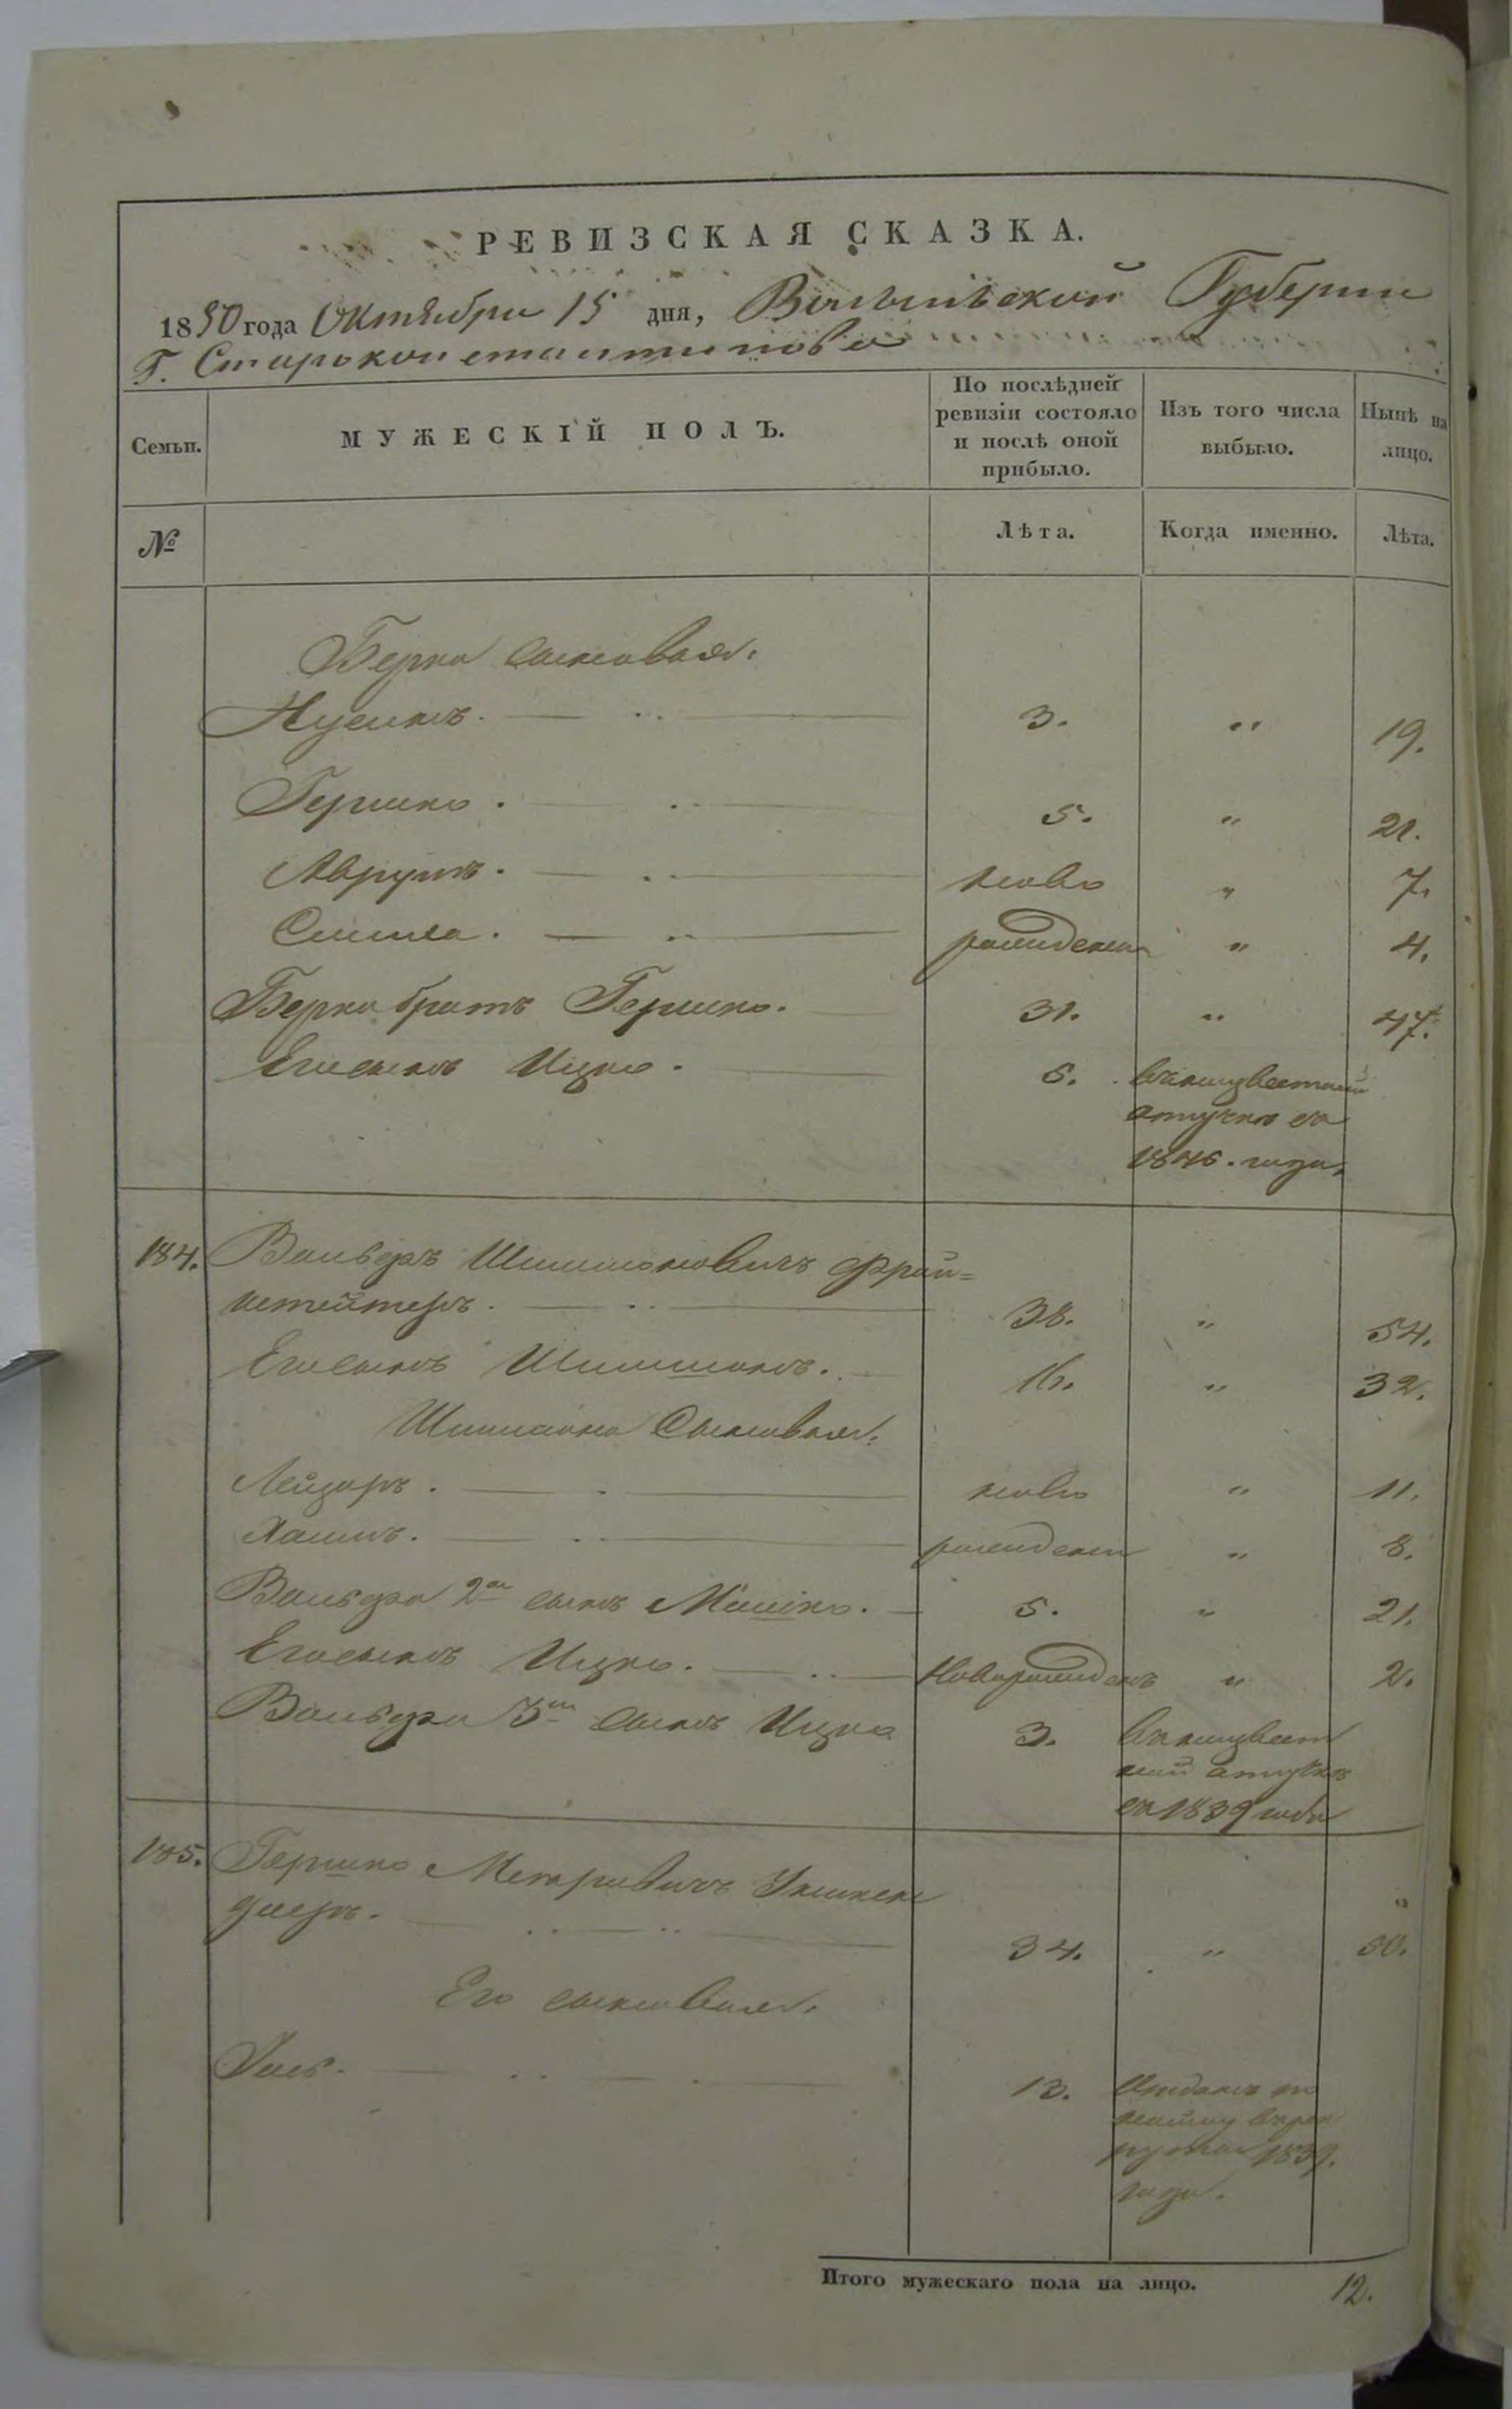 РЕВИЗСКАЯ СКАЗКА.
1850 года Октября 15 дня, Волынской Губернии
Г. Староконстантинова
Семьи. МУЖЕСКІЙ ПОЛЪ. По послѣдней ревизіи состояло и послѣ оной прибыло. Изъ того числа выбыло. Нынѣ на лицо.
№ Лѣта. Когда именно. Лѣта.
Берка сыновья.
Нусинъ. 3. " 19.
Гершко. 5. " 21.
Аврумъ. ново " 7.
Симха. рожденъ " 4.
Берка братъ Гершко. 31. " 47.
Его сынъ Ицко. 5. въ неизвестной
отлучке съ
1846. года.
184. Вольфъ Шимоновичъ Фрай=
38. " 54.
Его сынъ Шимонъ. 16. " 32.
Шимона Сыновья.
Лейзоръ. ново " 11.
Хаимъ. рожденъ " 8.
Вольфа 2й сынъ Мошко. 5. " 21.
Его сынъ Ицко. Новорожденъ " 2.
Вольфа 3й сынъ Ицко 3. въ неизвест
ной отлучке
съ 1839 года
185. Гершко
34. " 50.
Его сыновья.
13. Отданъ по
найму въ рек
руты 1839.
года.
Итого мужескаго пола на лицо. 12.